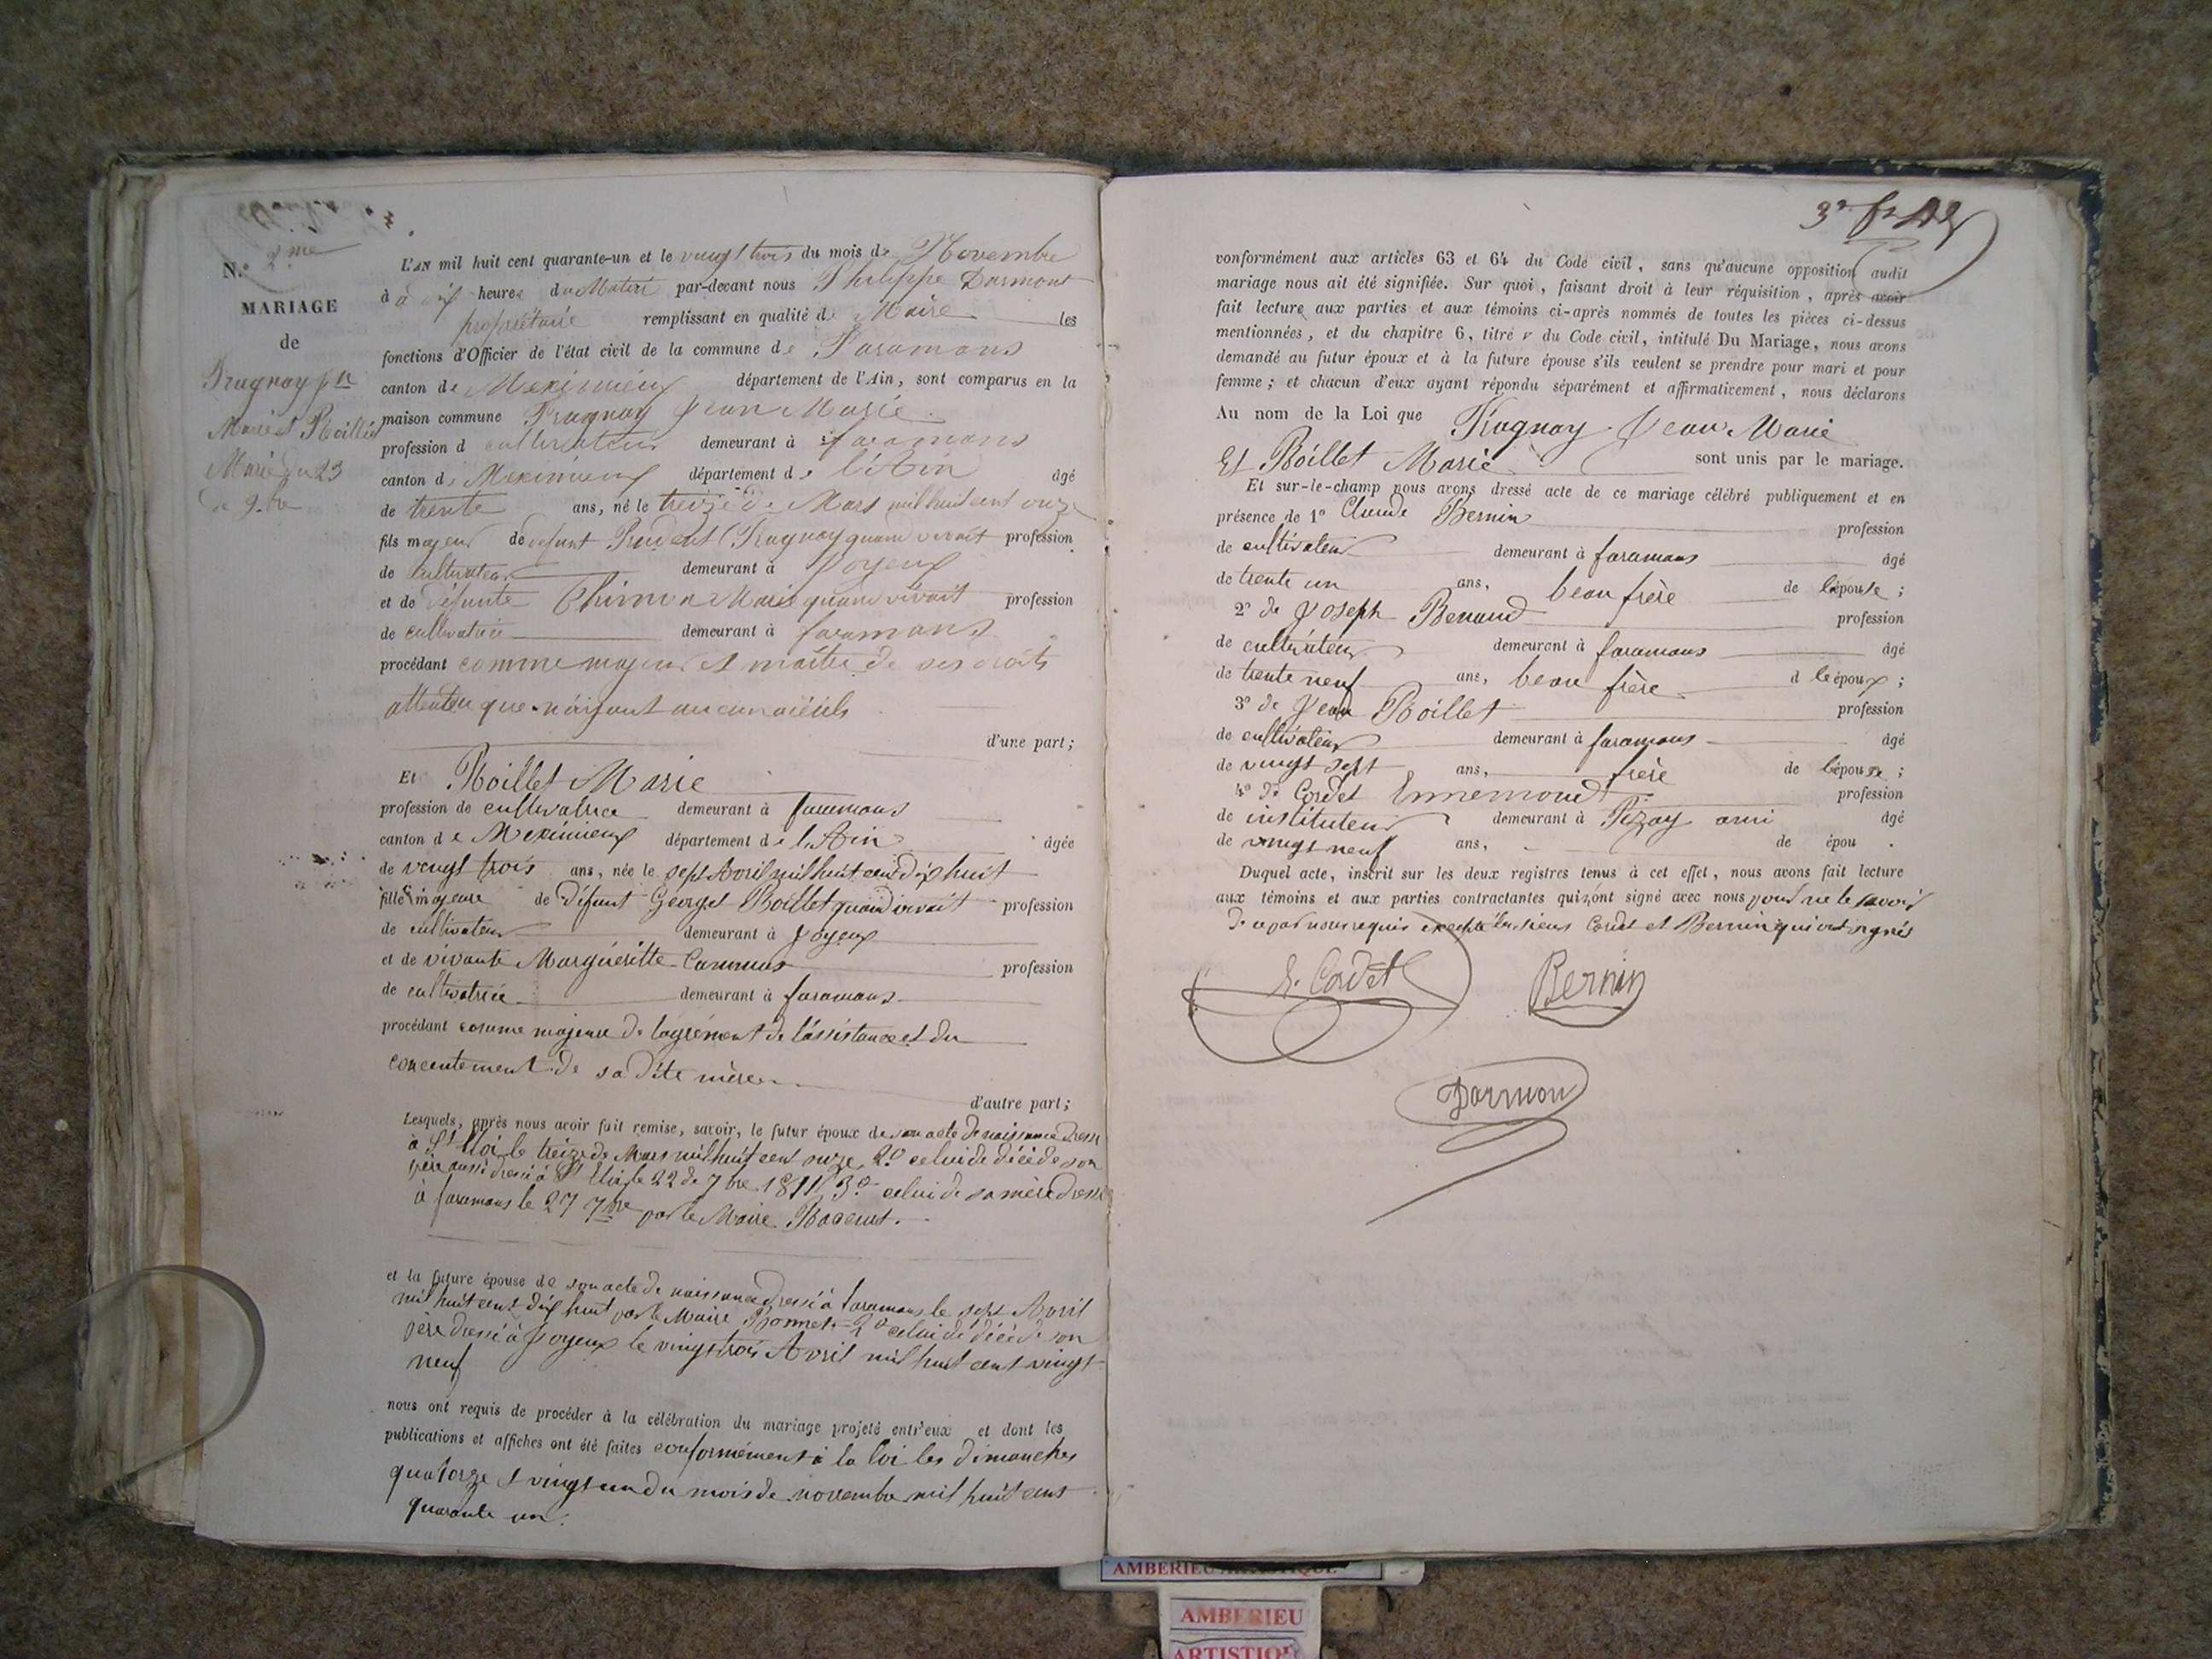 N.° 2.me
MARIAGE
de
Trugnay jn
Marie et Roillet
Marie du 23
de 9.bre
L'AN mil huit cent quarante-un et le vingt trois du mois de Novembre
à dix heures du Matin par-devant nous Philippe Darmont
propriétaire remplissant en qualité de Maire les
fonctions d'Officier de l'état civil de la commune de Faramans
canton de Meximieux département de l'Ain, sont comparus en la
maison commune Trugnay Jean Marie
profession d cultivateur demeurant à faramans
canton de Meximieux département de l'Ain âgé
de trente ans, né le treize de Mars mil huit cent onze
fils majeur de defunt Prudent Trugnay quand vivait profession
de cultivateur demeurant à Joyeux
et de défunte Marie quand vivait profession
de cultivatrice demeurant à faramans
procédant comme majeur et maître de ses droits
attendu que n'aiyant aucun aïeuls
d'une part;
Et Roillet Marie
profession de cultivatrice demeurant à faramans
canton de Meximieux département de l'Ain âgée
de vingt trois ans, née le sept Avril mil huit cent dix huit
fille majeure de défunt George Roillet quand vivait profession
de cultivateur demeurant à Joyeux
et de vivante Marguéritte profession
de cultivatrice demeurant à faramans
procédant comme majeure de l'agrément de l'assistance et du
concentement de sa dite mère
d'autre part;
Lesquels, après nous avoir fait remise, savoir, le futur époux de son acte de naissance dressé
à St Eloi le treize de Mars mil huit cent onze, 2.° celui de décè de son
père aussi dressé à St Eloi le 22 de 7bre 1811 3.° celui de sa mère dressé
à faramans le 27 7bre par le Maire
et la future épouse de son acte de naissance dressé à faramans le sept Avril
mil huit cent dix huit par le Maire Bonnet 2° celui de décè de son
père dressé à Joyeux le vingt trois Avril mil huit cent vingt
neuf
nous ont requis de procéder à la célébration du mariage projeté entr'eux et dont les
publications et affiches ont été faites conformément à la loi les dimanches
quatorze et vingt un du mois de novembre mil huit cent
quarante un.
conformément aux articles 63 et 64 du Code civil, sans qu'aucune opposition audit
mariage nous ait été signifiée. Sur quoi, faisant droit à leur réquisition, après avoir
fait lecture aux parties et aux témoins ci-après nommés de toutes les pièces ci-dessus
mentionnées, et du chapitre 6, titre v du Code civil, intitulé Du Mariage, nous avons
demandé au futur époux et à la future épouse s'ils veulent se prendre pour mari et pour
femme; et chacun d'eux ayant répondu séparément et affirmativement, nous déclarons
Au nom de la Loi que Trugnay Jean Marie
Et Roillet Marie sont unis par le mariage.
Et sur-le-champ nous avons dressé acte de ce mariage célébré publiquement et en
présence de 1° Claude Bernin profession
de cultivateur demeurant à faramans âgé
de trente un ans, beau frère de l'épouse;
2° de Joseph Renaud profession
de cultivateur demeurant à faramans âgé
de trente neuf ans, beau frère d l'époux;
3° de Jean Roillet profession
de cultivateur demeurant à faramans âgé
de vingt sept ans, frère de l'épouse;
4° de Cordet Ennemond profession
de instituteur demeurant à Pizay ami âgé
de vingt neuf ans, de épou .
Duquel acte, inscrit sur les deux registres tenus à cet effet, nous avons fait lecture
aux témoins et aux parties contractantes qui n'ont signé avec nous pour ne le savoir
de ce par nous requis excepté les sieurs Cordet et Bernin qui ont signés
E. Cordet
Bernin
Darmon
AMBERIEU ARTISTIQUE
AMBERIEU
ARTISTIQUE